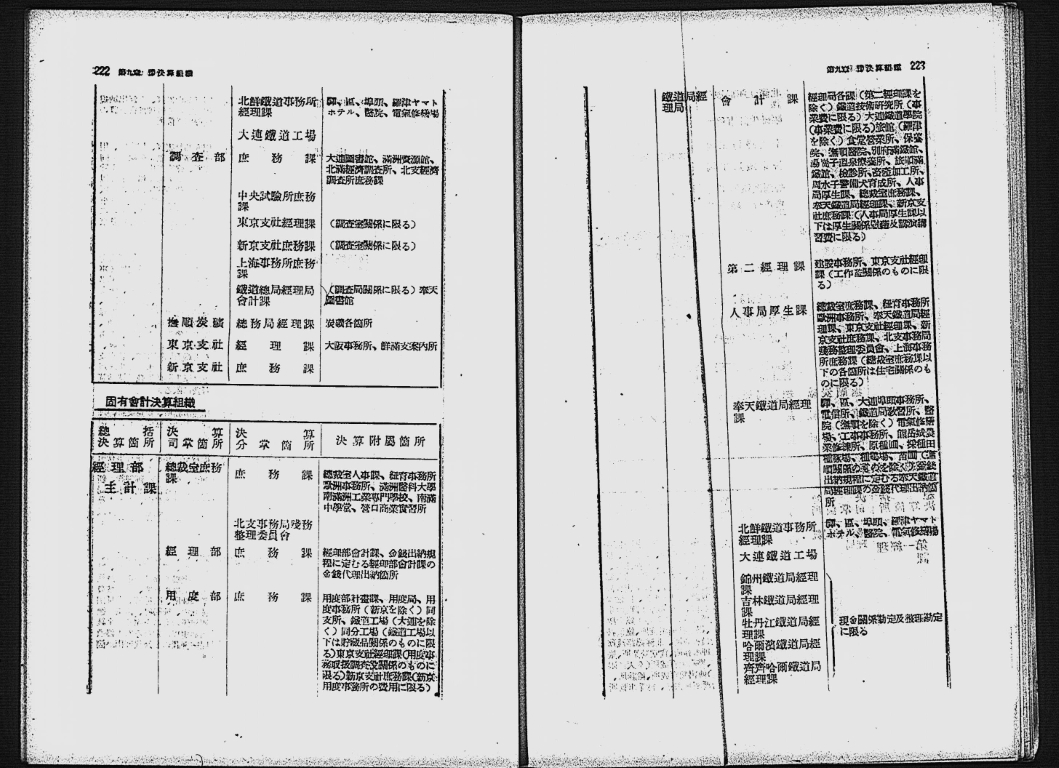 222 第九章 決算組織
北鮮鐵道事務所
經理課
驛、區、埠頭、羅津ヤマト
ホテル、醫院、電氣修繕場
大連鐵道工場
調査部 庶務課
大連圖書館、滿洲資源館、
北滿經濟調査所、北支經濟
調査所庶務課
中央試驗所庶務
課
東京支社經理課 (調査室關係に限る)
新京支社庶務課 (調査室關係に限る)
上海事務所庶務
課
鐵道總局經理局
會計課
(調査局關係に限る)奉天
圖書館
撫順炭礦 總務局經理課 炭礦各箇所
東京支社 經理課 大阪事務所、鮮滿支案内所
新京支社 庶務課
固有會計決算組織
總括
決算箇所
決算
司掌箇所
決算
分掌箇所
決算附屬箇所
經理部
主計課
總裁室庶務
課
庶務課
總裁室人事課、紐育事務所
歐洲事務所、滿洲醫科大學
南滿洲工業專門學校、南滿
中學堂、營口商業實習所
北支事務局殘務
整理委員會
經理部 庶務課
經理部會計課、金錢出納規
程に定むる經理部會計課の
金錢代理出納箇所
用度部 庶務課
用度部計畫課、用度局、用
度事務所(新京を除く)同
支所、鐵道工場(大連を除
く)同分工場(鐵道工場以
下は貯藏品關係のものに限
る)東京支社經理課(用度事
限る)新京支社庶務課(新京
用度事務所の費用に限る)
第九章 決算組織 223
鐵道局經
理局
會計課
經理局各課(第二經理課を
除く)鐵道技術研究所(事
業費に限る)大連鐵道學院
(事業費に限る)旅館、(羅津
を除く)食堂營業所、保養
院、撫順醫院、別府滿鐵館、
湯崗子溫泉療養所、旅順滿
鐵館、檢診所、畜産加工所、
周水子警備犬育成所、人事
局厚生課、總裁室庶務課、
奉天鐵道局經理課、新京支
社庶務課(人事局厚生課以
習費に限る)
第二經理課
建設事務所、東京支社經理
課(工作局關係のものに限
る)
人事局厚生課
總裁室庶務課、紐育事務所
歐洲事務所、奉天鐵道局經
理課、東京支社經理課、新
京支社庶務課、北支事務局
殘務整理委員會、上海事務
所庶務課(總裁室庶務課以
下の各箇所は住宅關係のも
のに限る)
奉天鐵道局經理
課
驛、區、大連埠頭事務所、
電信所、鐵道局敎習所、醫
院(撫順を除く)電氣修繕
場、工事事務所、
所
北鮮鐵道事務所
經理課
驛、區、埠頭、羅津ヤマト
ホテル、醫院、電氣修繕場
大連鐵道工場
錦州鐵道局經理
課
吉林鐵道局經理
課
牡丹江鐵道局經
理課
哈爾濱鐵道局經
理課
齊齊哈爾鐵道局
經理課
現金關係勘定及整理勘定
に限る